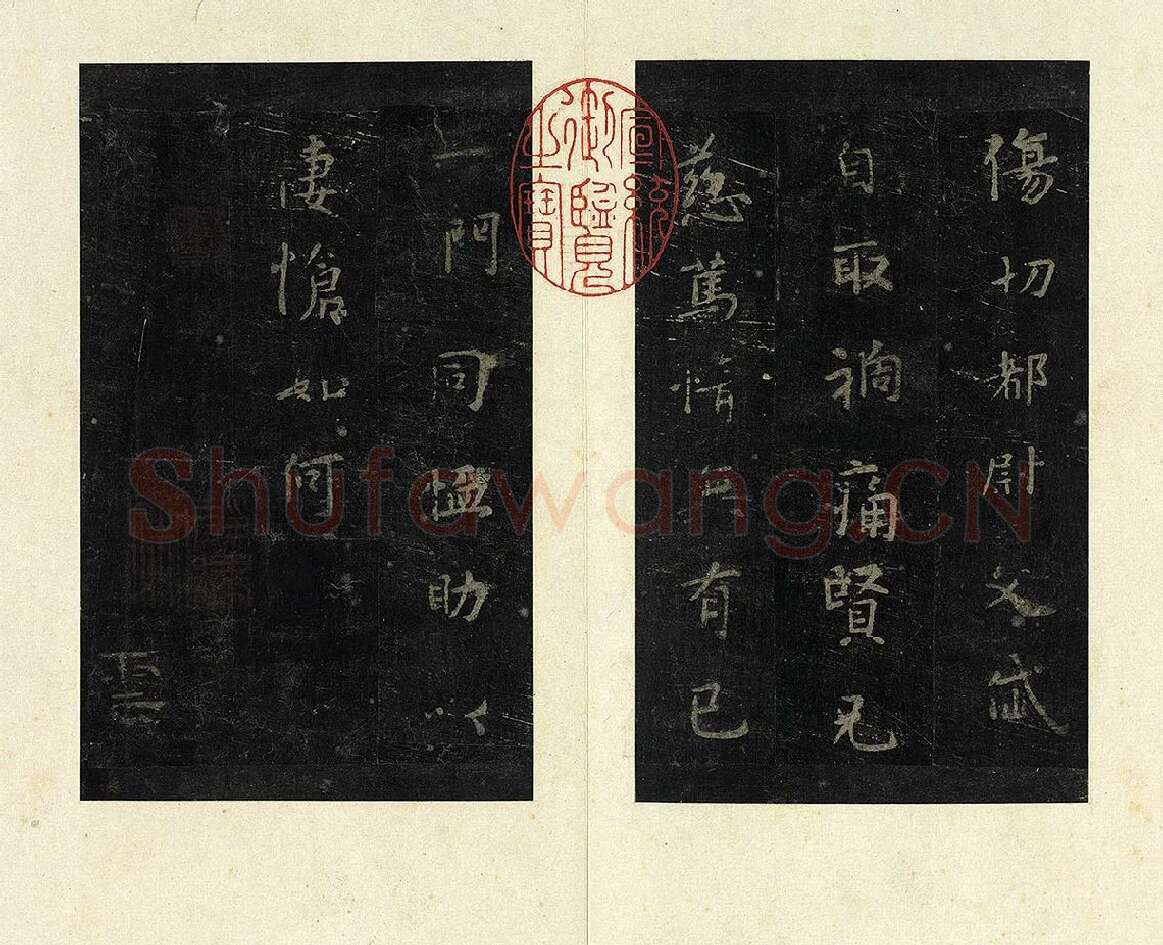 傷切都尉文武
自取禍痛賢兄
慈篤情無有已
一門同恤助以
悽愴如何
宣統御覽之寶
Shufawang.CN